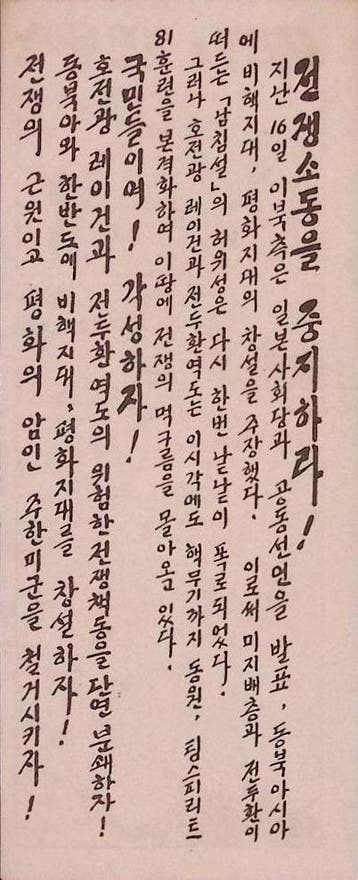 전쟁소동을 중지하라!
지난 16일 이북측은 일본사회당과 공동선언을 발표, 동북아시아
에 비핵지대, 평화지대의 창설을 주장했다. 이로써 미지배층과 전두환이
떠드는 「남침설」의 허위성은 다시 한번 낱낱이 폭로되었다.
그러나 호전광 레이건과 전두환역도는 이시각에도 핵무기까지 동원, 팀스피리트
81훈련을 본격화하여 이땅에 전쟁의 먹구름을 몰아오고 있다.
국민들이여! 각성하자!
호전광 레이건과 전두환역도의 위험한전쟁책동을단연분쇄하자!
동북아와 한반도에 비핵지대, 평화지대를 창설하자!
전쟁의 근원이고 평화의 암인 주한미군을 철거시키자!